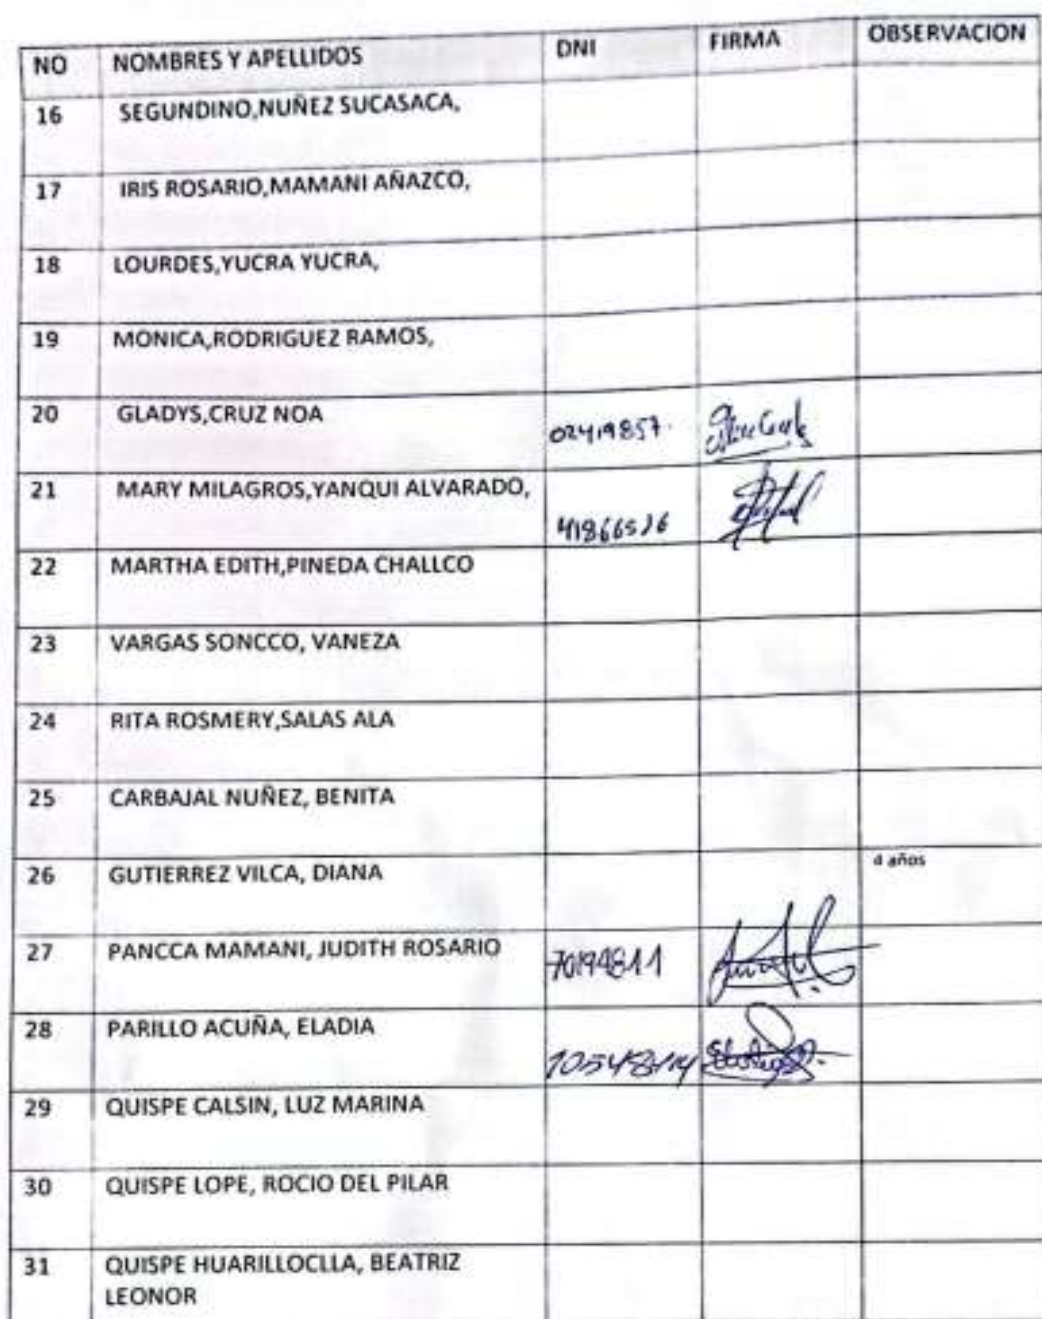 NO NOMBRES Y APELLIDOS DNI FIRMA OBSERVACION
16 SEGUNDINO,NUÑEZ SUCASACA,
17 IRIS ROSARIO,MAMANI AÑAZCO,
18 LOURDES,YUCRA YUCRA,
19 MONICA,RODRIGUEZ RAMOS,
20 GLADYS,CRUZ NOA 02419857.
21 MARY MILAGROS,YANQUI ALVARADO,
22 MARTHA EDITH,PINEDA CHALLCO
23 VARGAS SONCCO, VANEZA
24 RITA ROSMERY,SALAS ALA
25 CARBAJAL NUÑEZ, BENITA
26 GUTIERREZ VILCA, DIANA 4 años
27 PANCCA MAMANI, JUDITH ROSARIO 70194811
28 PARILLO ACUÑA, ELADIA
29 QUISPE CALSIN, LUZ MARINA
30 QUISPE LOPE, ROCIO DEL PILAR
31 QUISPE HUARILLOCLLA, BEATRIZ
LEONOR